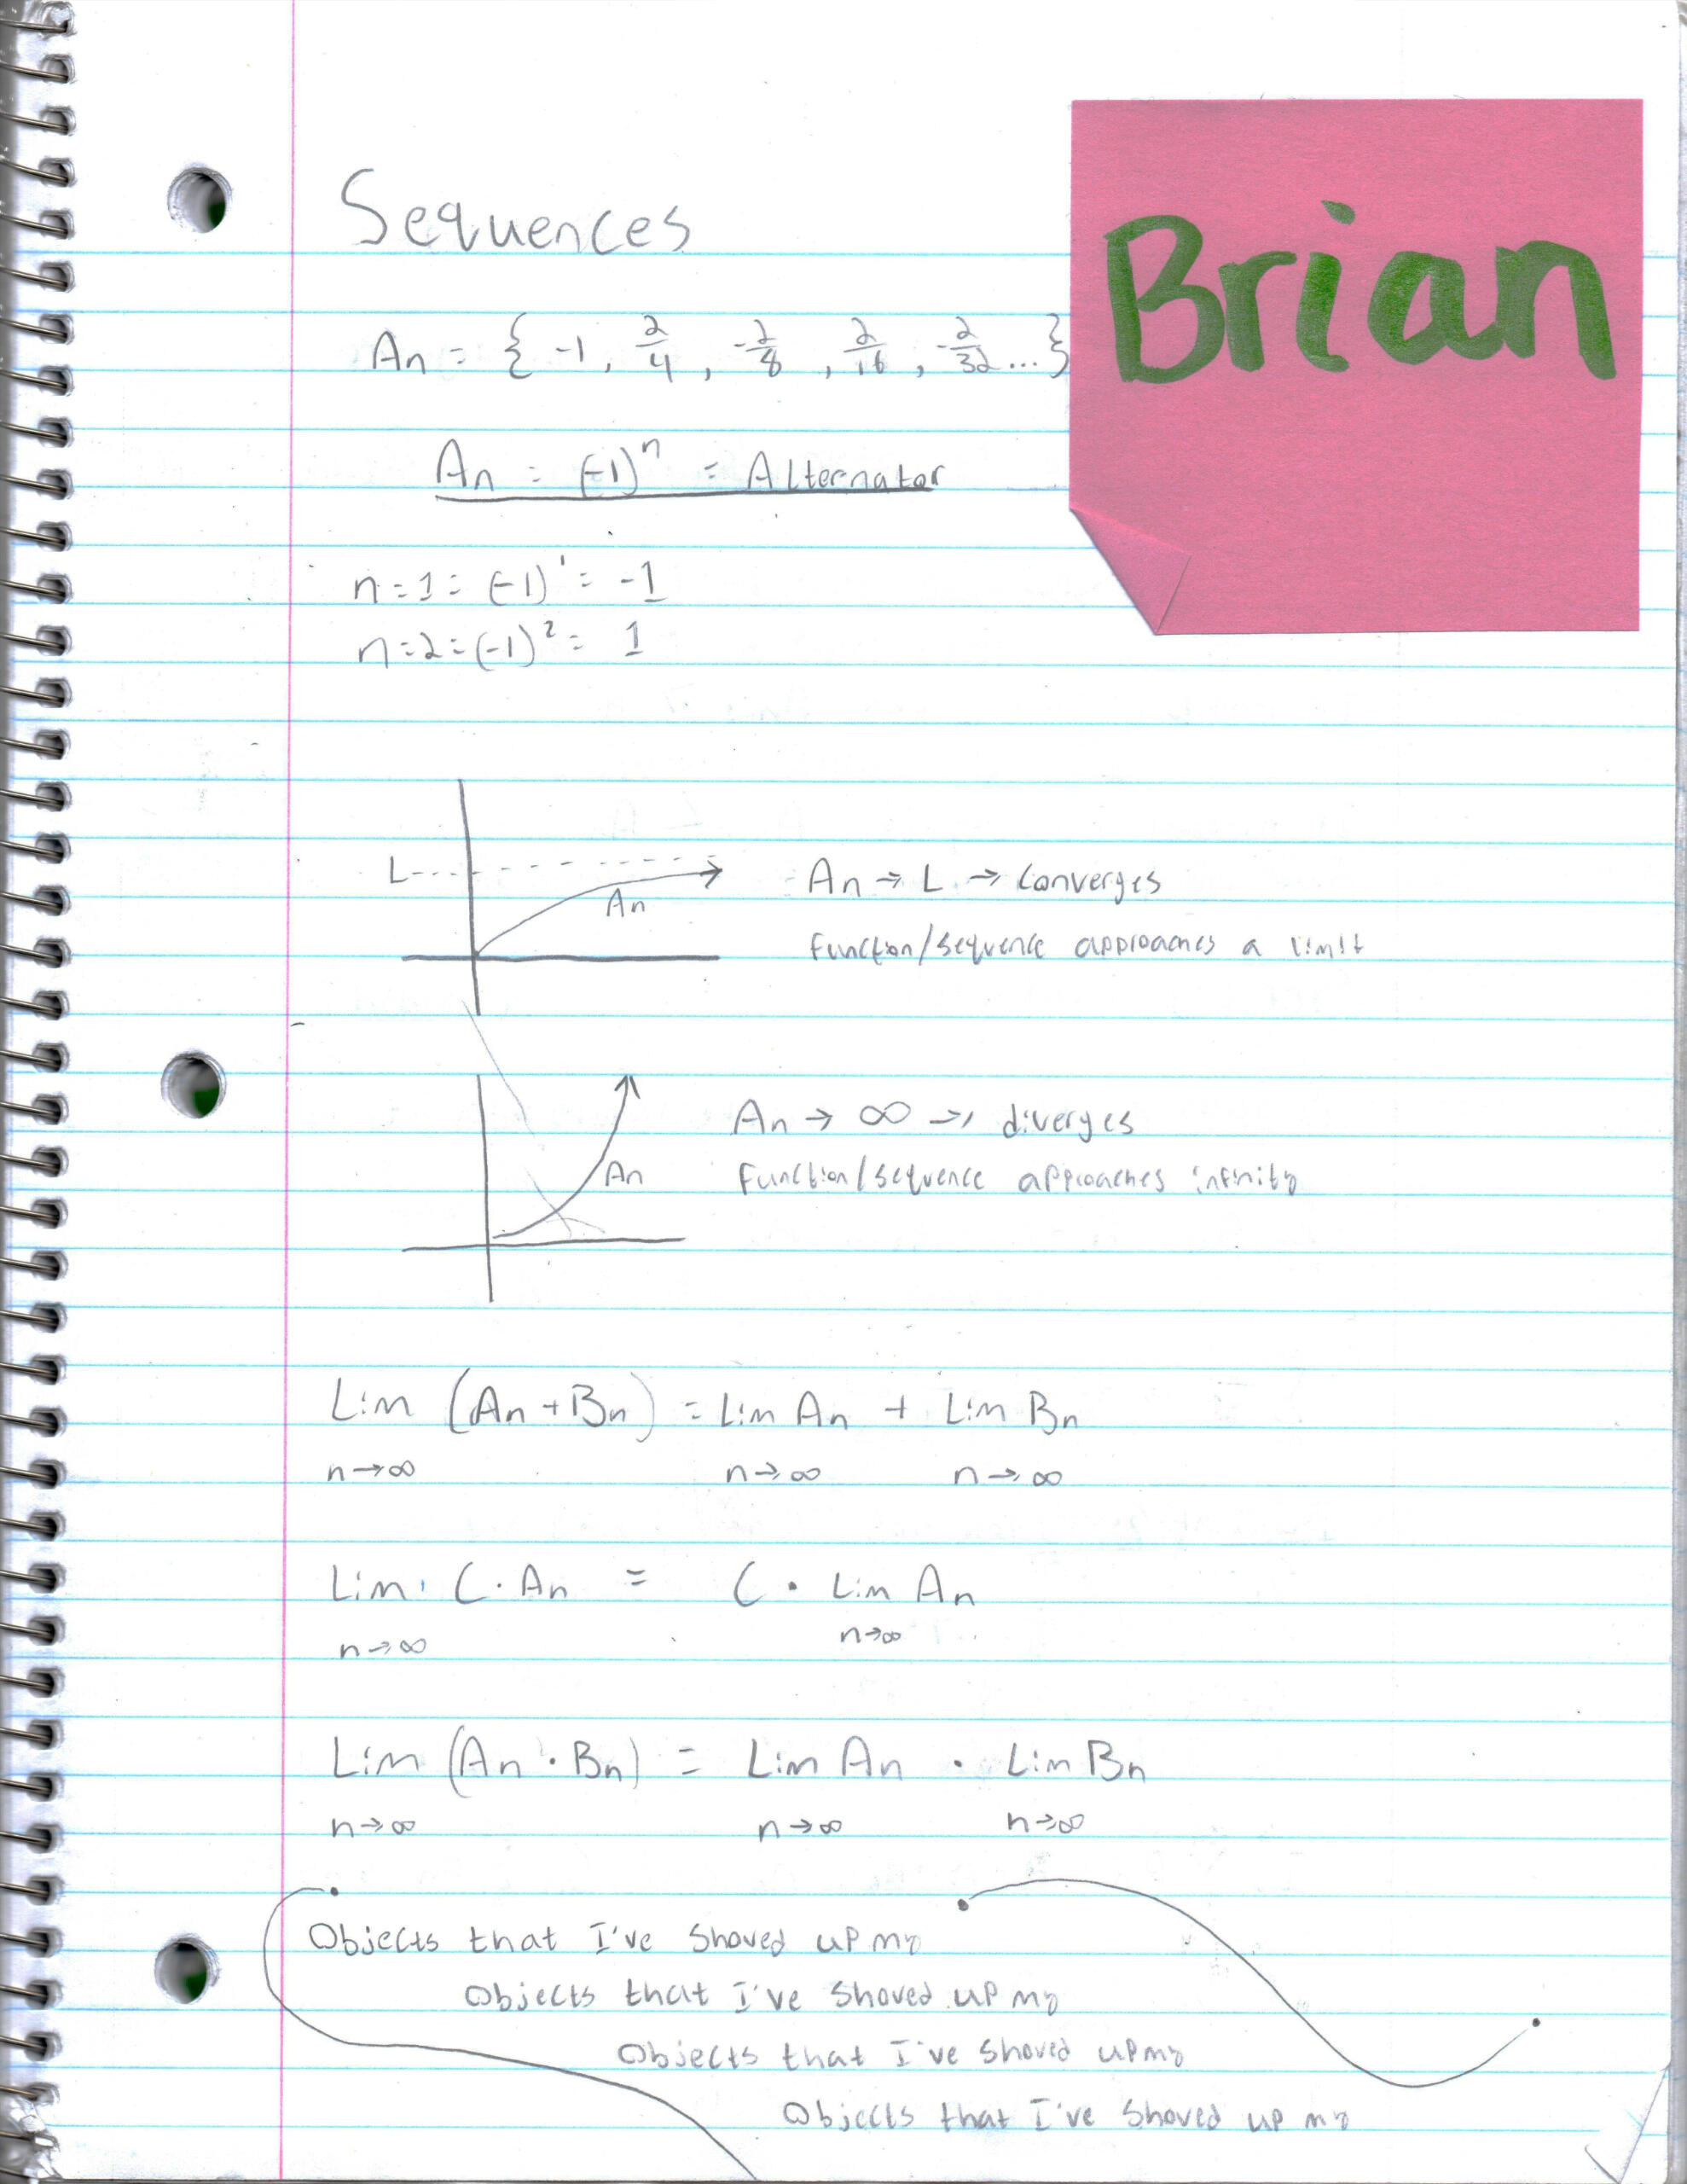 Sequences
Brian
An = { -1, 2/4, -2/8, 2/16, -2/32 ... }
An = (-1)^n = Alternator
n=1 = (-1)^1 = -1
n=2 = (-1)^2 = 1
L
An
An → L → Converges
Function/sequence approaches a limit
An
An → ∞ → diverges
Function/sequence approaches infinity
Lim (An + Bn) = Lim An + Lim Bn
n→∞ n→∞ n→∞
Lim C · An = C · Lim An
n→∞ n→∞
Lim (An · Bn) = Lim An · Lim Bn
n→∞ n→∞ n→∞
Objects that I've Shoved up my
Objects that I've Shoved up my
Objects that I've Shoved up my
Objects that I've Shoved up my